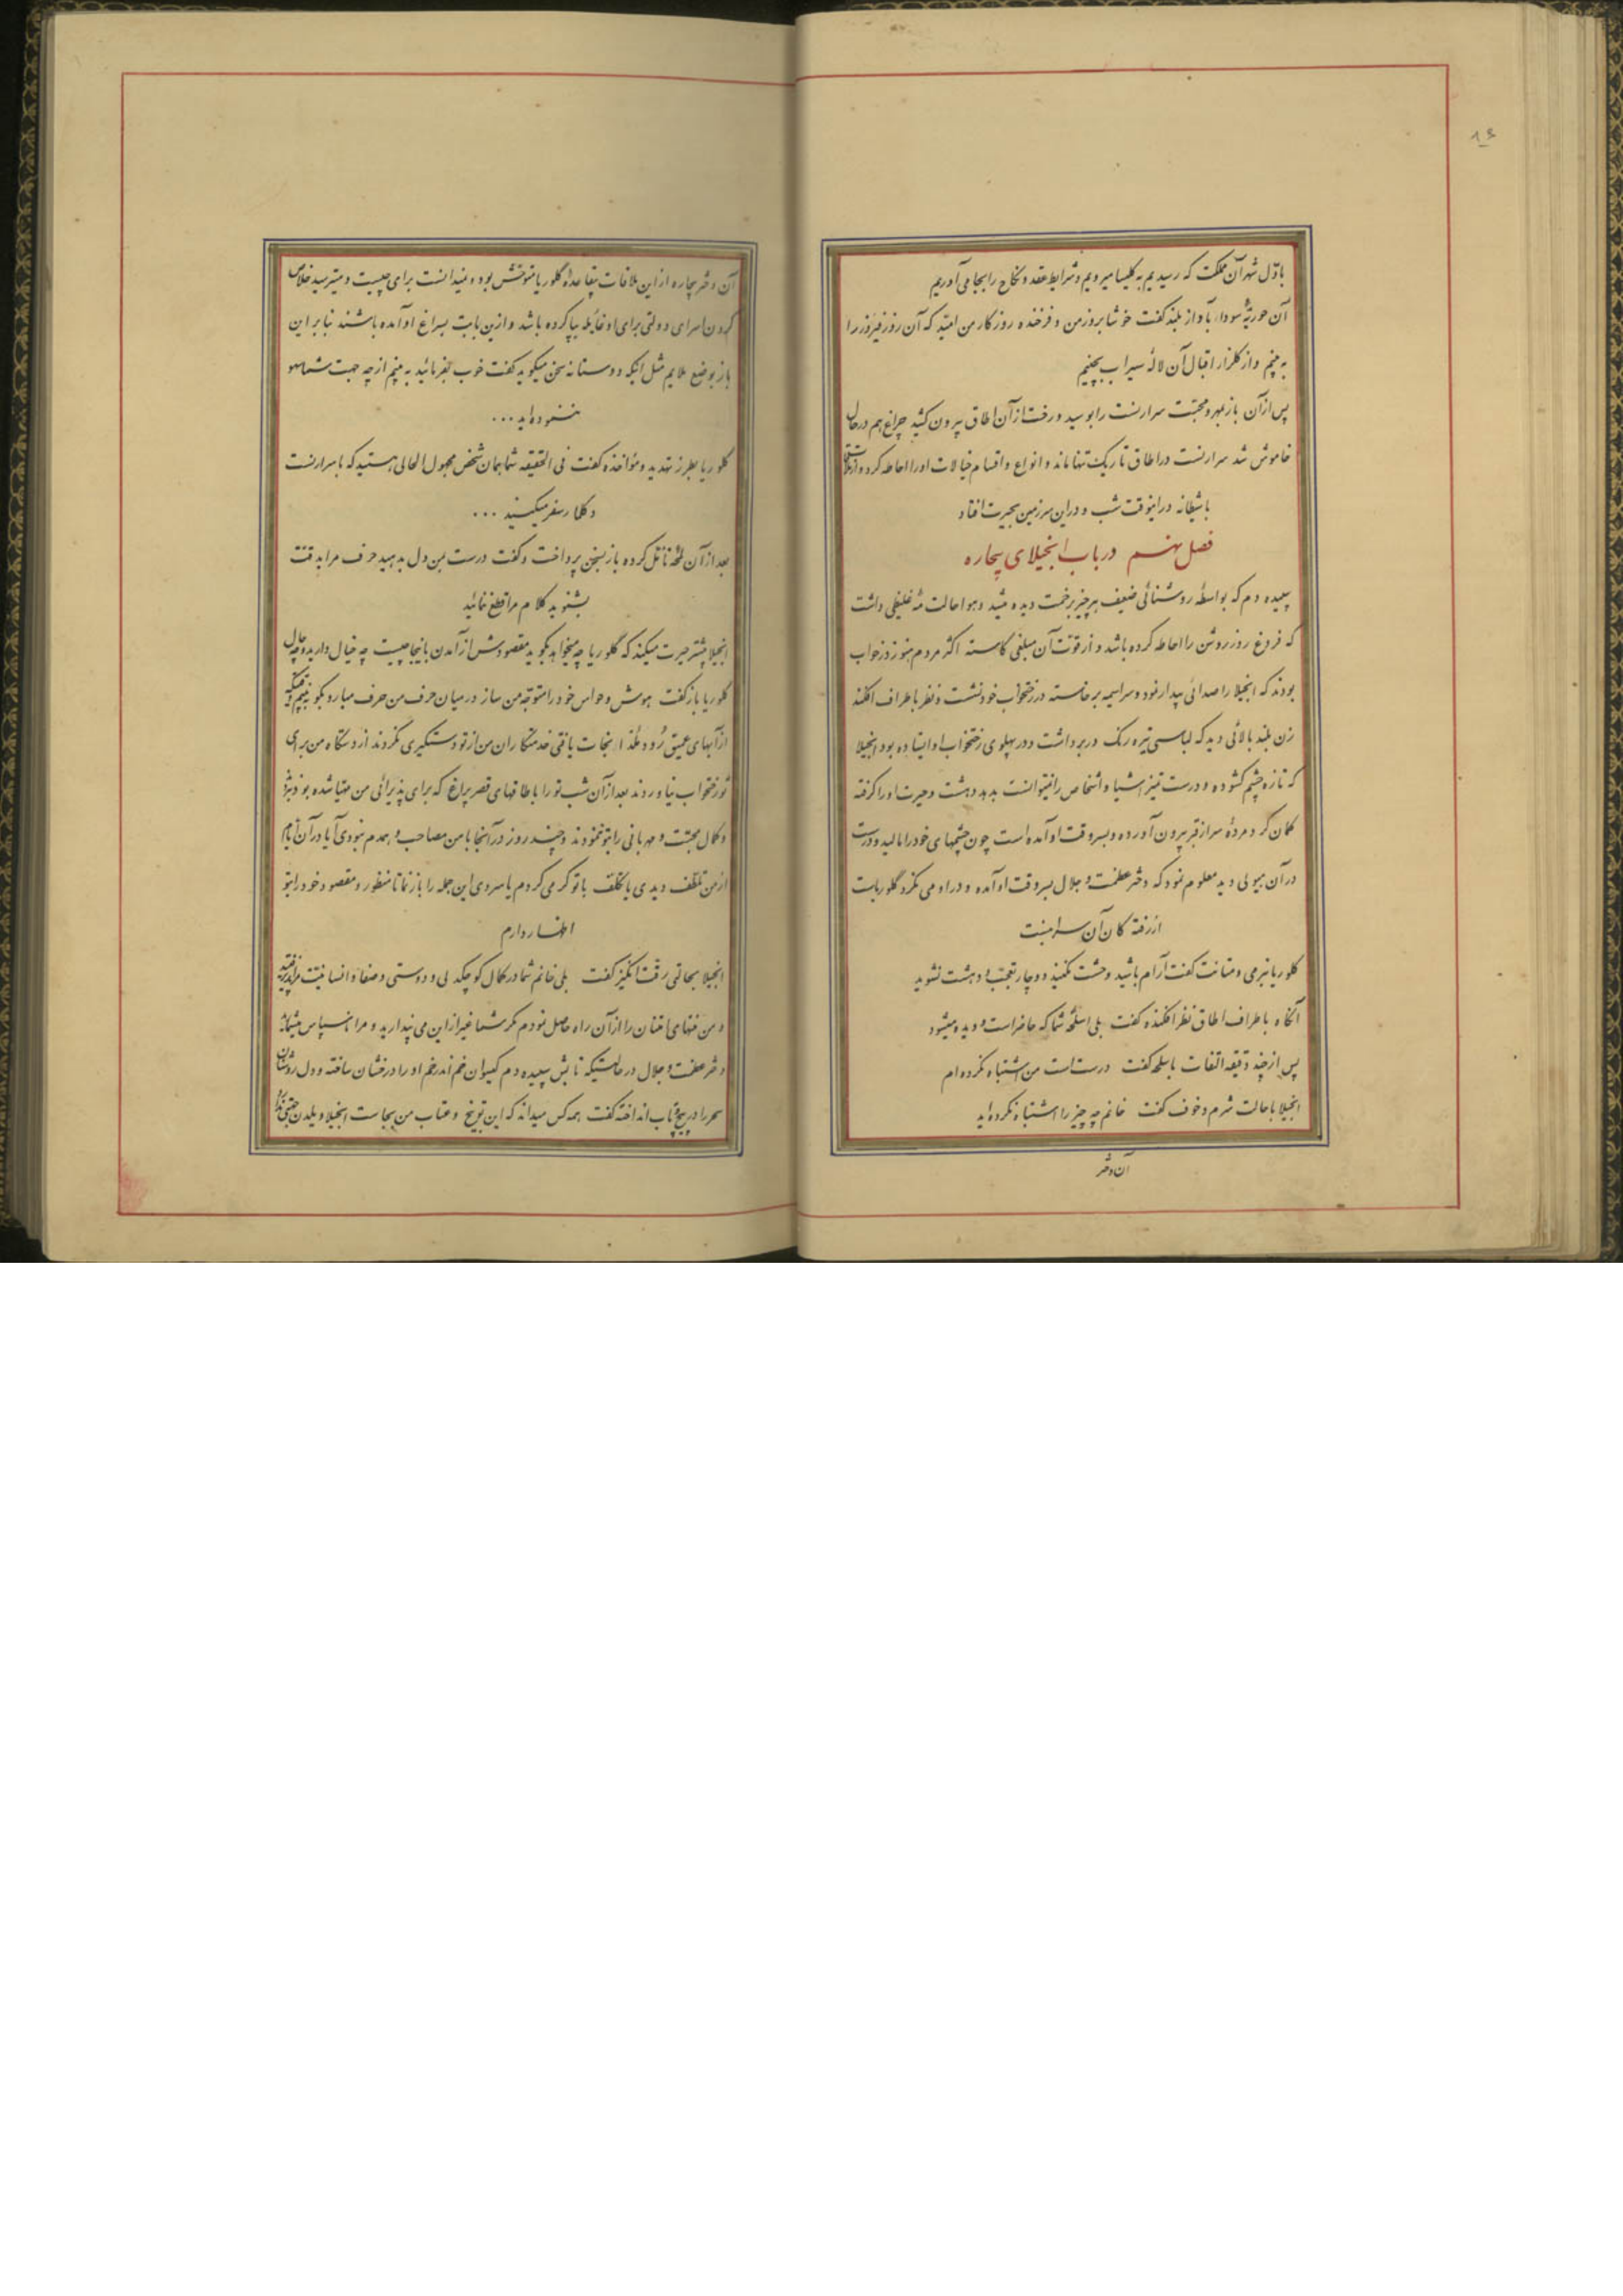 ۸۴
باوّل شهر آن مملکت که رسیدیم به کلیسا میرویم و شرایط عقد و نکاح را بجا می‌آوریم
آن حوریّه سودا، بآواز بلند گفت خوشا بروز من و فرخنده روزکار من امید که آن روز فیروز را
به بینم و از کلزار اقبال آن لالهٔ سیراب بچینم
پس از آن باز بمهر و محبّت سرارنست را بوسید و رخت از آن اطاق بیرون کشید چراغ هم در حال
خاموش شد سرارنست در اطاق تاریک تنها ماند و انواع و اقسام خیالات اورا احاطه کرد و از
با شیطانه در اینوقت شب و در این سرزمین بحیرت افتاد
فصل نهم در باب انجیلای بیچاره
سپیده دم که بواسطهٔ روشنائی ضعیف هر چیز بزحمت دیده میشد و هوا حالت مه غلیظی داشت
که فروغ روز روشن را احاطه کرده باشد و از قوّت آن مبلغی کاسته اکثر مردم هنوز در خواب
بودند که انجیلا را صدائی بیدار نمود و سراسیمه برخاسته در رختخواب خود نشست و نظر باطراف افکند
زن بلند بالائی دید که لباسی تیره رنک در بر داشت و در پهلوی رختخواب او ایستاده بود انجیلا
که تازه چشم کشوده و درست تمیز اشیا و اشخاص را نمیتوانست بدهد دهشت و حیرت اورا کرفته
کمان کرد مردهٔ سر از قبر بیرون آورده و بسر وقت او آمده است چون چشمهای خودرا مالید و درست
در آن هیولی دید معلوم نمود که دختر عظمت و جلال بسر وقت او آمده و در او می نکرد کلوریاست
از رفته کان آن سرا نیست
کلوریا بنرمی و متانت کفت آرام باشید وحشت نکنید و دچار تعجّب و دهشت نشوید
آنکاه باطراف اطاق نظر افکنده کفت بلی اسلحهٔ شما که حاضر است و دیده میشود
پس از چند دقیقه التفات باسلحه کفت درست است من اشتباه نکرده‌ام
انجیلا با حالت شرم و خوف کفت خانم چه چیز را اشتباه نکرده‌اید
آن دختر
آن دختر بیچاره از این ملاقات بیقاعدهٔ کلوریا متوحّش بود و نمیدانست برای چیست و میترسید خلاص
کردن اسرای دولتی برای او غایله بپا کرده باشد و ازین بابت بسراغ او آمده باشند بنا بر این
باز بوضع ملایم مثل اینکه دوستانه سخن میکوید کفت خوب بفرمائید به بینم از چه جهت شما سهو
ننموده‌اید ...
کلوریا بطرز تهدید و مؤاخذه کفت فی الحقیقه شما همان شخص مجهول الحالی هستید که با سرارنست
و کلارا سفر میکنید ...
بعد از آن لمحهٔ تأمّل کرده باز بسخن پرداخت و کفت درست بمن دل بدهید حرف مرا بدقّت
بشنوید کلام مرا قطع ننمائید
انجیلا بیشتر حیرت میکند که کلوریا چه میخواهد بکوید مقصودش از آمدن باینجا چیست چه خیال دارد و چه حال
کلوریا باز کفت هوش و حواس خودرا متوجّه من ساز در میان حرف من حرف میار و بکو به بینم
از آبهای عمیق رود ملدا نجات یافتی خدمتکاران من از تو دستکیری نکردند از دستکاه من برای
تو رختخواب نیاوردند بعد از آن شب تورا باطاقهای قصر پراغ که برای پذیرائی من مهیّا شده بود نبردند
و کمال محبّت و مهربانی را بتو ننمودند و چند روز در آنجا با من مصاحب و همدم نبودی آیا در آن ایّام
از من تلطّف دیدی یا تکلّف با تو کرمی کردم یا سردی این جمله را باز نما تا منظور و مقصود خودرا بتو
اظهار دارم
انجیلا بحالتی رقّت انکیز کفت بلی خانم شما در کمال کوچکدلی و دوستی و صفا و انسانیّت مرا پذیرفتید
و من منتهای امتنان را از آن راه حاصل نمودم مکر شما غیر از این می پندارید و مرا ناسپاس میشمارید
دختر عظمت و جلال در حالتیکه تابش سپیده دم کیسوان خم اندر خم اورا درخشان ساخته و دل روشنان
سحر را در پیچ و تاب انداخته کفت همه کس میداند که این توبیخ و عتاب من بجاست انجیلا ویلدن